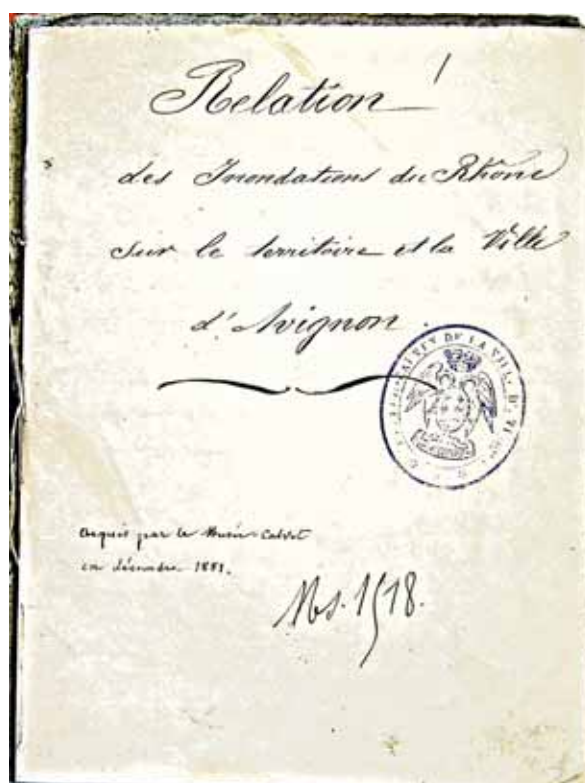 Relation
des Inondations du Rhône
sur le territoire et la Ville
d'Avignon
DE LA VILLE D'
Acquis par le Musée-Calvet
en décembre 1881.
Ms. 1518.